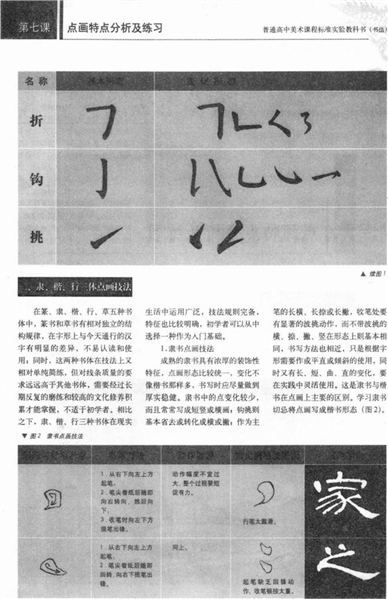 第七课
点画特点分析及练习
普通高中美术课程标准实验教科书(书法)
名称
折
钩
挑
▲ 续图1
二、隶、楷、行三体点画技法
在篆、隶、楷、行、草五种书
体中，篆书和草书有相对独立的结
构规律，在字形上与今天通行的汉
字有明显的差异，不易认读和使
用；同时，这两种书体在技法上又
相对单纯简练，但对线条质量的要
求远远高于其他书体，需要经过长
期反复的磨炼和较高的文化修养积
累才能掌握，不适于初学者。相比
之下，隶、楷、行三种书体在现实
生活中运用广泛，技法规则完备，
特征也比较明确，初学者可以从中
选择一种作为入门基础。
1.隶书点画技法
成熟的隶书具有浓厚的装饰性
特征，点画形态比较统一，变化不
像楷书那样多，书写时应尽量做到
厚实稳健。隶书中的点变化较少，
而且常常写成短竖或横画；钩挑则
基本省去或转化成横或撇；作为主
笔的长横、长捺或长撇，收笔处要
有显著的波挑动作，而不带波挑的
横、捺、撇、竖在形态上则基本相
同，书写方法也相近，只是根据字
形需要作或平直或倾斜的使用，同
时又有长、短、曲、直的变化，要
在实践中灵活使用。这是隶书与楷
书在点画上主要的区别，学习隶书
切忌将点画写成楷书形态（图2）。
▼ 图2 隶书点画技法
1.从右下向左上方
起笔。
2.笔尖着纸后随即
向右转向，然后向
下。
3.收笔时向左下方
提笔出锋。
动作幅度不宜过
大，整个过程要短
促有力。
行笔太露滑。
家
1.从右下向左上方
起笔。
2.笔尖着纸后随即
回转，向右下提笔出
锋。
同上。
起笔缺乏回锋动
作，收笔顿按太重。
之